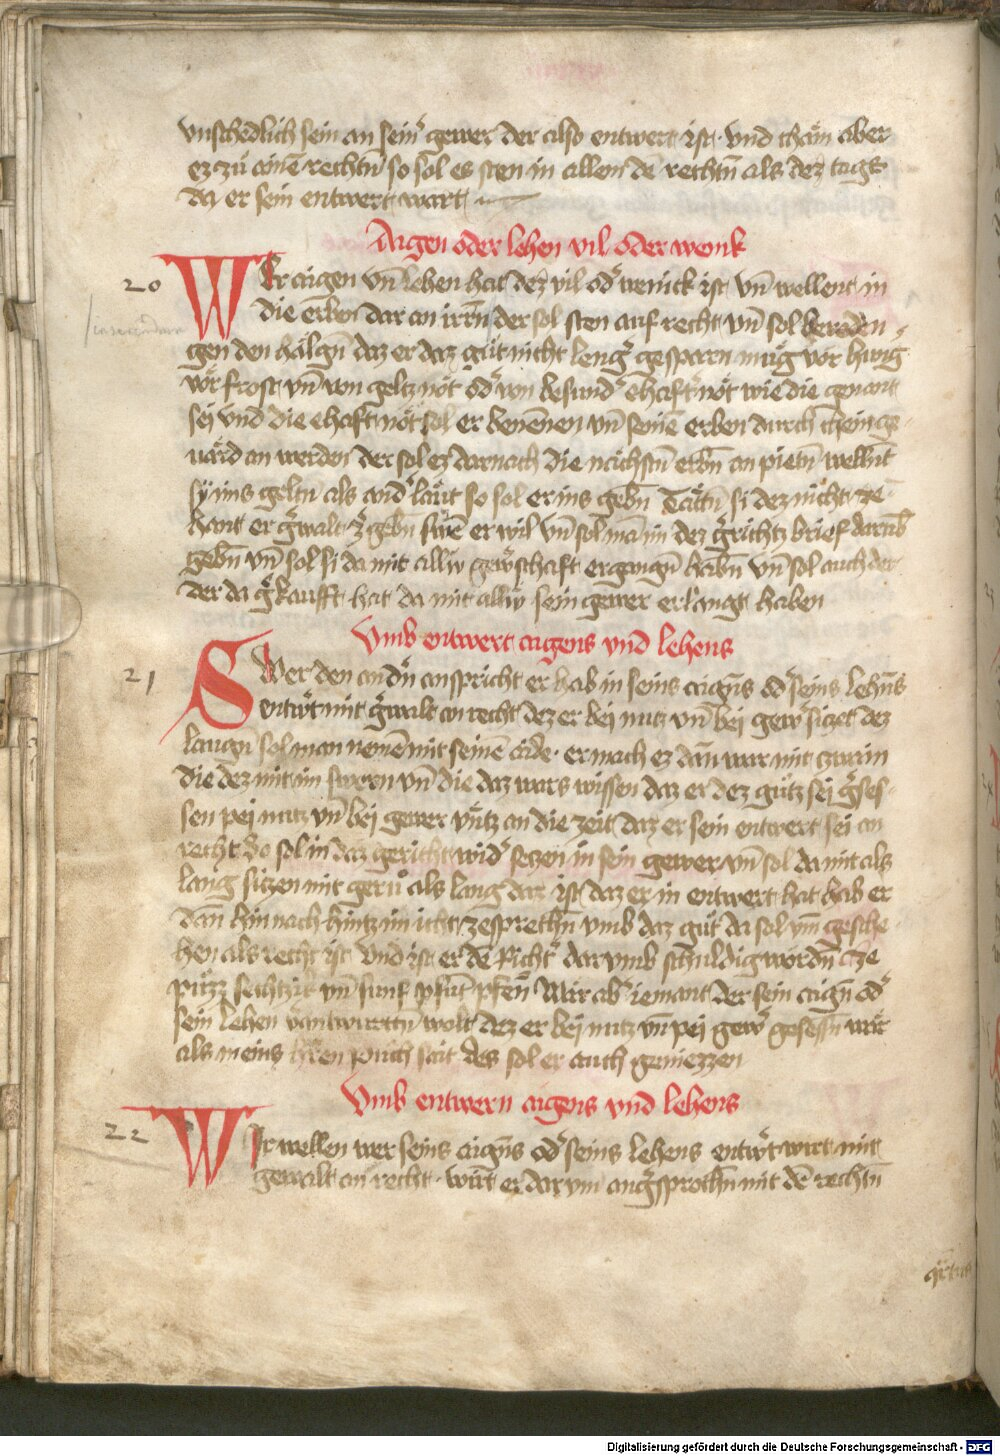 vnschedlich sein an seinˀ gewer der also entwert ist · vnd chäm aber
ez zü ainē rechtn̄ so sol es sten in allem dē rechtn̄ als dez tags
da er sein entwert wart
Aigen oder lehen vil oder wenik
20 Wer aigen vn̄ lehen hat dez vil odˀ wenick ist vn̄ wellent in
die erben dar an irrn̄ der sol sten auf recht vn̄ sol
gen den hälgn̄ daz er daz güt nicht lengˀ gesparn müg vor hungˀ
vor frost vn̄ von gelcz nöt odˀ von besundˀ ehaftˀ nöt wie die genant
sei vnd die ehaft nöt sol er benennen vn̄ seinē erben durch chein ge
uärd an werden der sol ez darnach die nächstn̄ erbn̄ an pietn̄ wellnt
sÿ ims geltn̄ als andˀ läut so sol er ins gebn̄ Tättn̄ si dez nicht ze
hant er hˀ gwalt zˀ gebn̄ swē er wil vn̄ sol mā im dez gˀrichtz brief darūb
gebn̄ vn̄ sol si da mit alliv gewˀschaft ergangn̄ habn̄ vn̄ sol auch der
der da gˀkaufft hat da mit alliv sein gewer erlangt haben
Vmb entwert aigens vnd lehens
21 Swer den andˀn̄ anspricht er hab in seins aign̄s odˀ seins lehn̄s
entwˀt mit gˀwalt an recht dez er bei nutz vn̄ bei gewˀ siczet dez
laugn̄ sol man nemē mit seinē aide · er mach ez dan̄ war mit zwain
die dez mit im swern vn̄ die daz wars wissen daz er dez gütz sei gˀses
sen pei nutz vn̄ bei gewer vn̄tz an die zeit daz er sein entwert sei an
recht So sol in daz gericht widˀ seczen in sein gewer vn̄ sol da mit als
lang siczen mit gerů als lang daz ist daz er in entwert hat hab er
dan̄ hin nach hincz im icht zesprechn̄ vmb daz güt da sol ym gesche
hen als recht ist vnd ist er dē Richtˀ dar vmb schuldig wordn̄ cze
püzz sechczik vn̄ fünf pfūt pfen̄ Wär abˀ iemant der sein aign̄ odˀ
sein lehen vˀantwurttn̄ wolt dez er bei nutz vn̄ pei gewˀ gesessn̄ wär
als meins hˀren püch sait des sol er auch geniezzen
Vmb entwern aigens vnd lehens
22 Wir wellen wer seins aign̄s odˀ seins lehens entwˀt wirt mit
gewalt an recht · wirt er dar vm angˀsprochn̄ mit dē rechtn̄
Digitalisierung gefördert durch die Deutsche Forschungsgemeinschaft - DFG